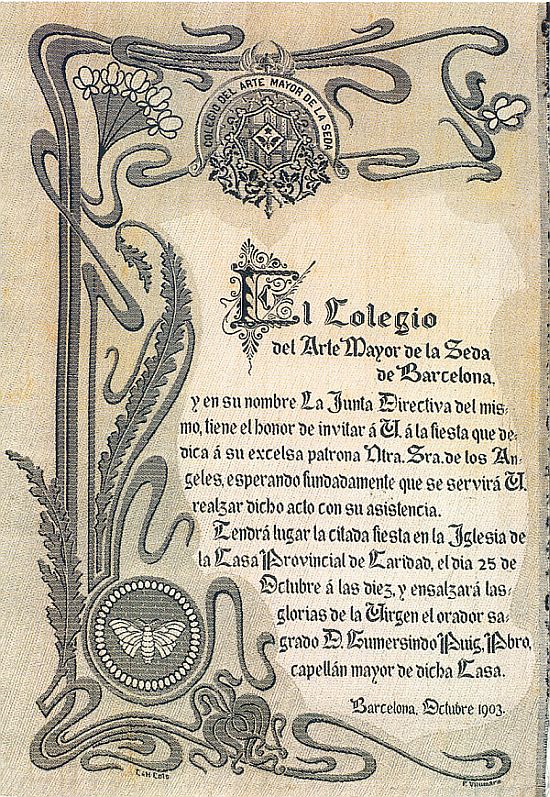 COLEGIO DEL ARTE MAYOR DE LA SEDA
El Colegio
del Arte Mayor de la Seda
de Barcelona,
y en su nombre La Junta Directiva del mis-
mo, tiene el honor de invitar á U. á la fiesta que de-
dica á su excelsa patrona Ntra. Sra. de los An-
geles, esperando fundadamente que se servirá U.
realzar dicho acto con su asistencia.
Tendrá lugar la citada fiesta en la Iglesia de
la Casa Provincial de Caridad, el dia 25 de
Octubre á las diez, y ensalzará las
glorias de la Virgen el orador sa-
grado D. Gumersindo Puig, Pbro,
capellán mayor de dicha Casa.
Barcelona, Octubre 1903.
F. Vilumara